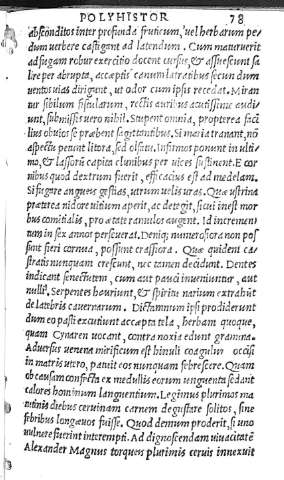 POLYHISTOR 78
absconditos inter profunda fruticum, uel herbarum pe-
dum uerbere castigant ad latendum. Cum maturuerit
ad fugam robur exercitio docent cursus, & assuescunt sa
lire per abrupta, acceptis canum latratibus secundum
uentos uias dirigunt, ut odor cum ipsis recedat. Miran
tur sibilum fistularum, rectis auribus acutissime audi-
unt, submissis uero nihil. Stupent omnia, propterea faci
lius obuios se præbent sagittantibus. Si maria tranant, nõ
aspectu petunt litora, sed olfatu. Infirmos ponunt in ulti=
mo, & lassorũ capita clunibus per uices sustinent. E cor
nibus quod dextrum fuerit, efficacius est ad medelam.
Si fugare angues gestias, utrum uelis uras. Quæ ustrina
præterea nidore uitium aperit, ac detegit, si cui inest mor
bus comitialis, pro ætate ramulos augent. Id incremen
tum in sex annos perseuerat. Deniq; numerosiora non pos
sunt fieri cornua, possunt crassiora. Quæ quidem ca=
stratis nunquam crescunt, nec tamen decidunt. Dentes
indicant senectutem, cum aut pauci inueniuntur, aut
nulli. Serpentes hauriunt, & spiritu narium extrahũt
de latebris cauernarum. Dictamnum ipsi prodiderunt
dum eo pasti excutiunt accepta tela, herbam quoque,
quam Cynaren uocant, contra noxia edunt gramina.
Aduersus uenena mirificum est hinuli coagulum occisi
in matris utero, patuit eos nunquam febrescere. Quam
ob causam confecta ex medullis eorum unguenta sedant
calores hominum languentium. Legimus plurimos ma
tutinis diebus ceruinam carnem degustare solitos, sine
febribus longæuos fuisse. Quod demum proderit, si uno
uulnere fuerint interempti. Ad dignoscendam uiuacitatẽ
Alexander Magnus torques plurimis ceruis innexuit